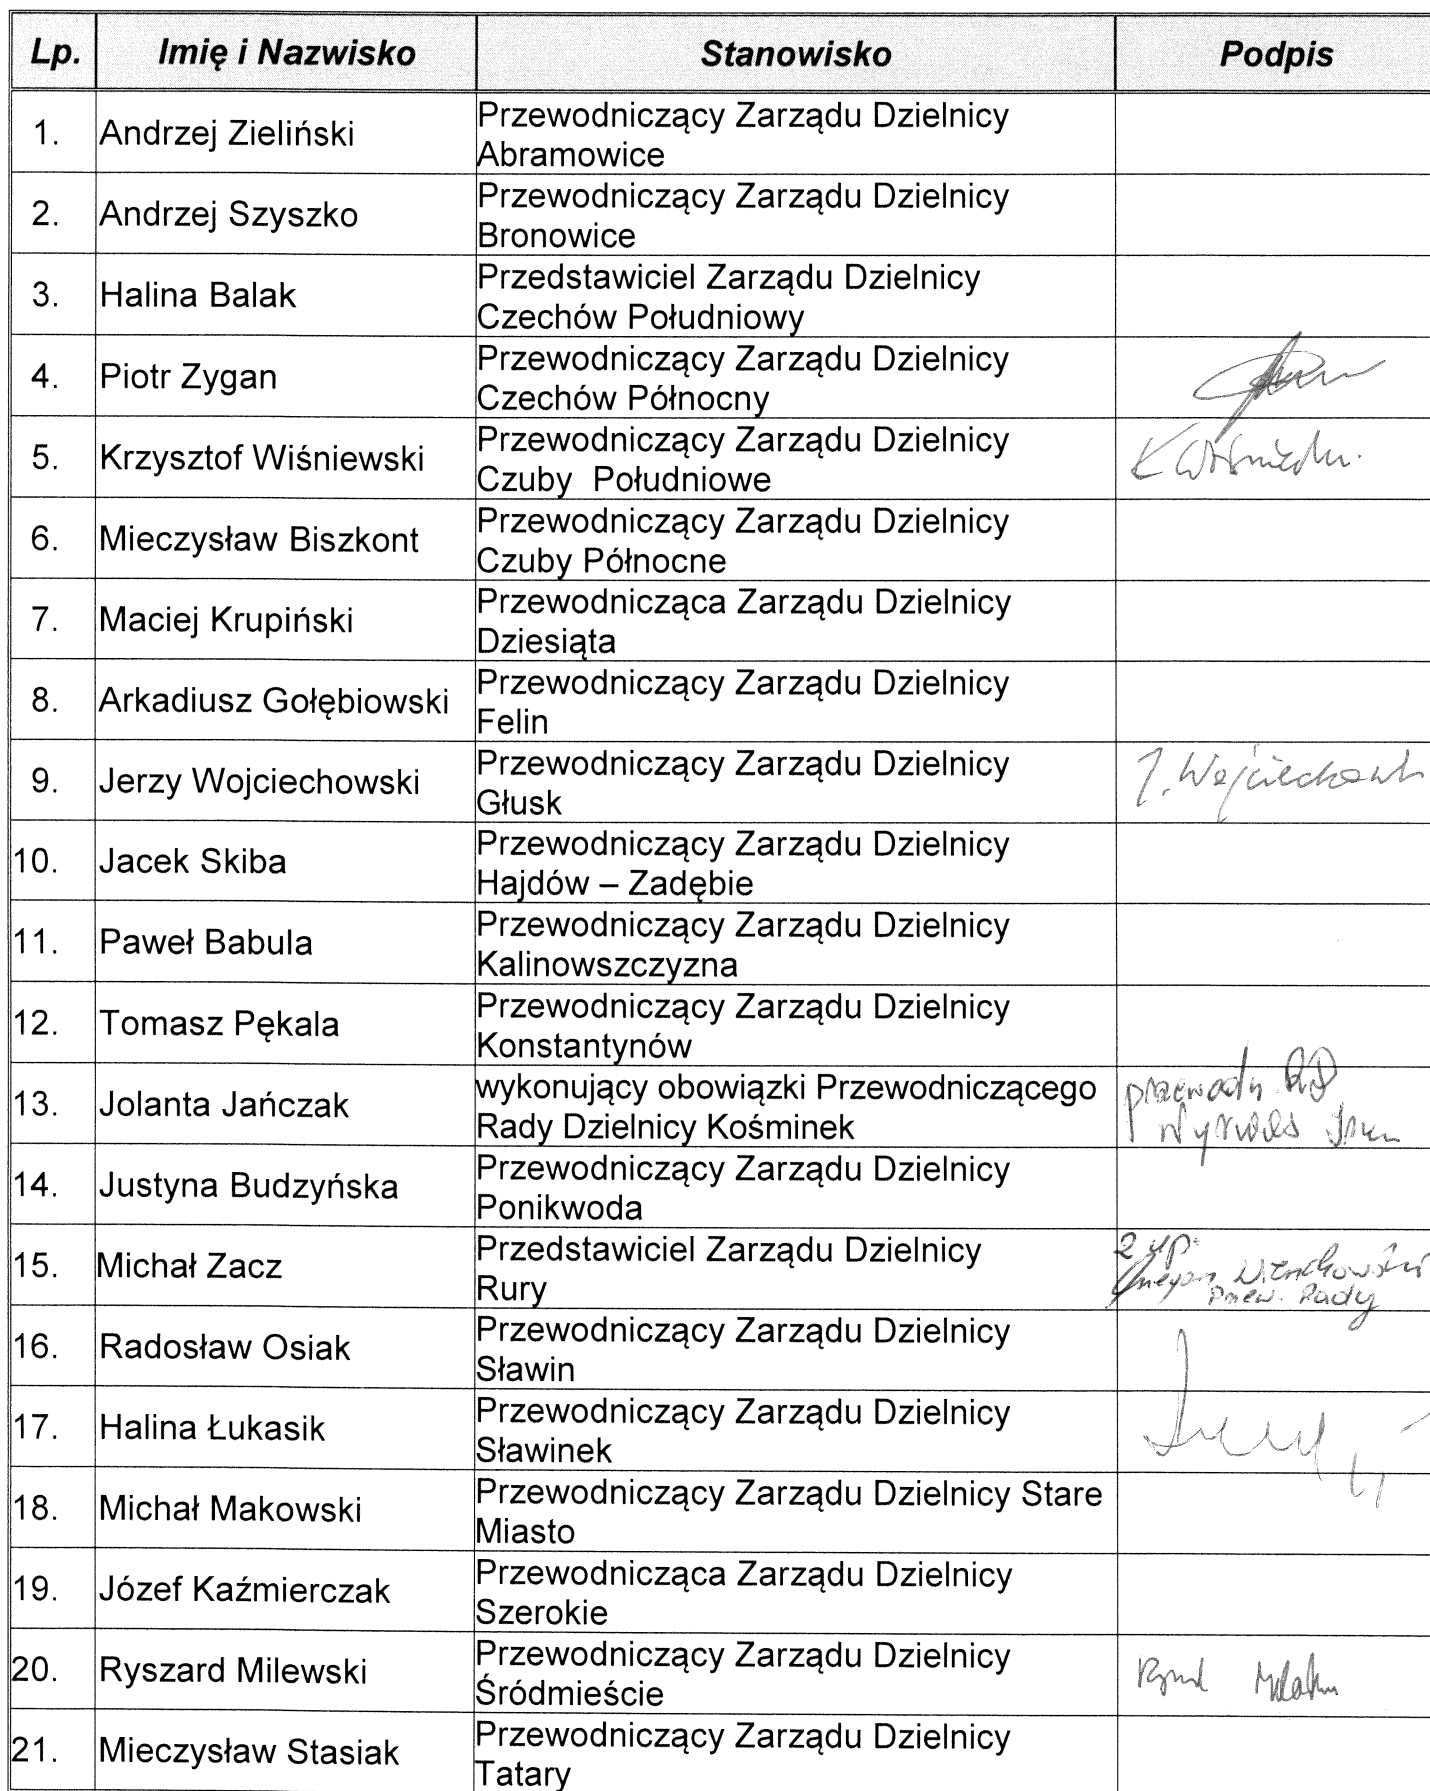 Lp. Imię i Nazwisko Stanowisko Podpis
1. Andrzej Zieliński Przewodniczący Zarządu Dzielnicy
Abramowice
2. Andrzej Szyszko Przewodniczący Zarządu Dzielnicy
Bronowice
3. Halina Balak Przedstawiciel Zarządu Dzielnicy
Czechów Południowy
4. Piotr Zygan Przewodniczący Zarządu Dzielnicy
Czechów Północny
5. Krzysztof Wiśniewski Przewodniczący Zarządu Dzielnicy
Czuby Południowe
6. Mieczysław Biszkont Przewodniczący Zarządu Dzielnicy
Czuby Północne
7. Maciej Krupiński Przewodnicząca Zarządu Dzielnicy
Dziesiąta
8. Arkadiusz Gołębiowski Przewodniczący Zarządu Dzielnicy
Felin
9. Jerzy Wojciechowski Przewodniczący Zarządu Dzielnicy
Głusk
10. Jacek Skiba Przewodniczący Zarządu Dzielnicy
Hajdów – Zadębie
11. Paweł Babula Przewodniczący Zarządu Dzielnicy
Kalinowszczyzna
12. Tomasz Pękala Przewodniczący Zarządu Dzielnicy
Konstantynów
13. Jolanta Jańczak wykonujący obowiązki Przewodniczącego
Rady Dzielnicy Kośminek
przewodn. RD
14. Justyna Budzyńska Przewodniczący Zarządu Dzielnicy
Ponikwoda
15. Michał Zacz Przedstawiciel Zarządu Dzielnicy
Rury
Rady
16. Radosław Osiak Przewodniczący Zarządu Dzielnicy
Sławin
17. Halina Łukasik Przewodniczący Zarządu Dzielnicy
Sławinek
18. Michał Makowski Przewodniczący Zarządu Dzielnicy Stare
Miasto
19. Józef Kaźmierczak Przewodnicząca Zarządu Dzielnicy
Szerokie
20. Ryszard Milewski Przewodniczący Zarządu Dzielnicy
Śródmieście
21. Mieczysław Stasiak Przewodniczący Zarządu Dzielnicy
Tatary